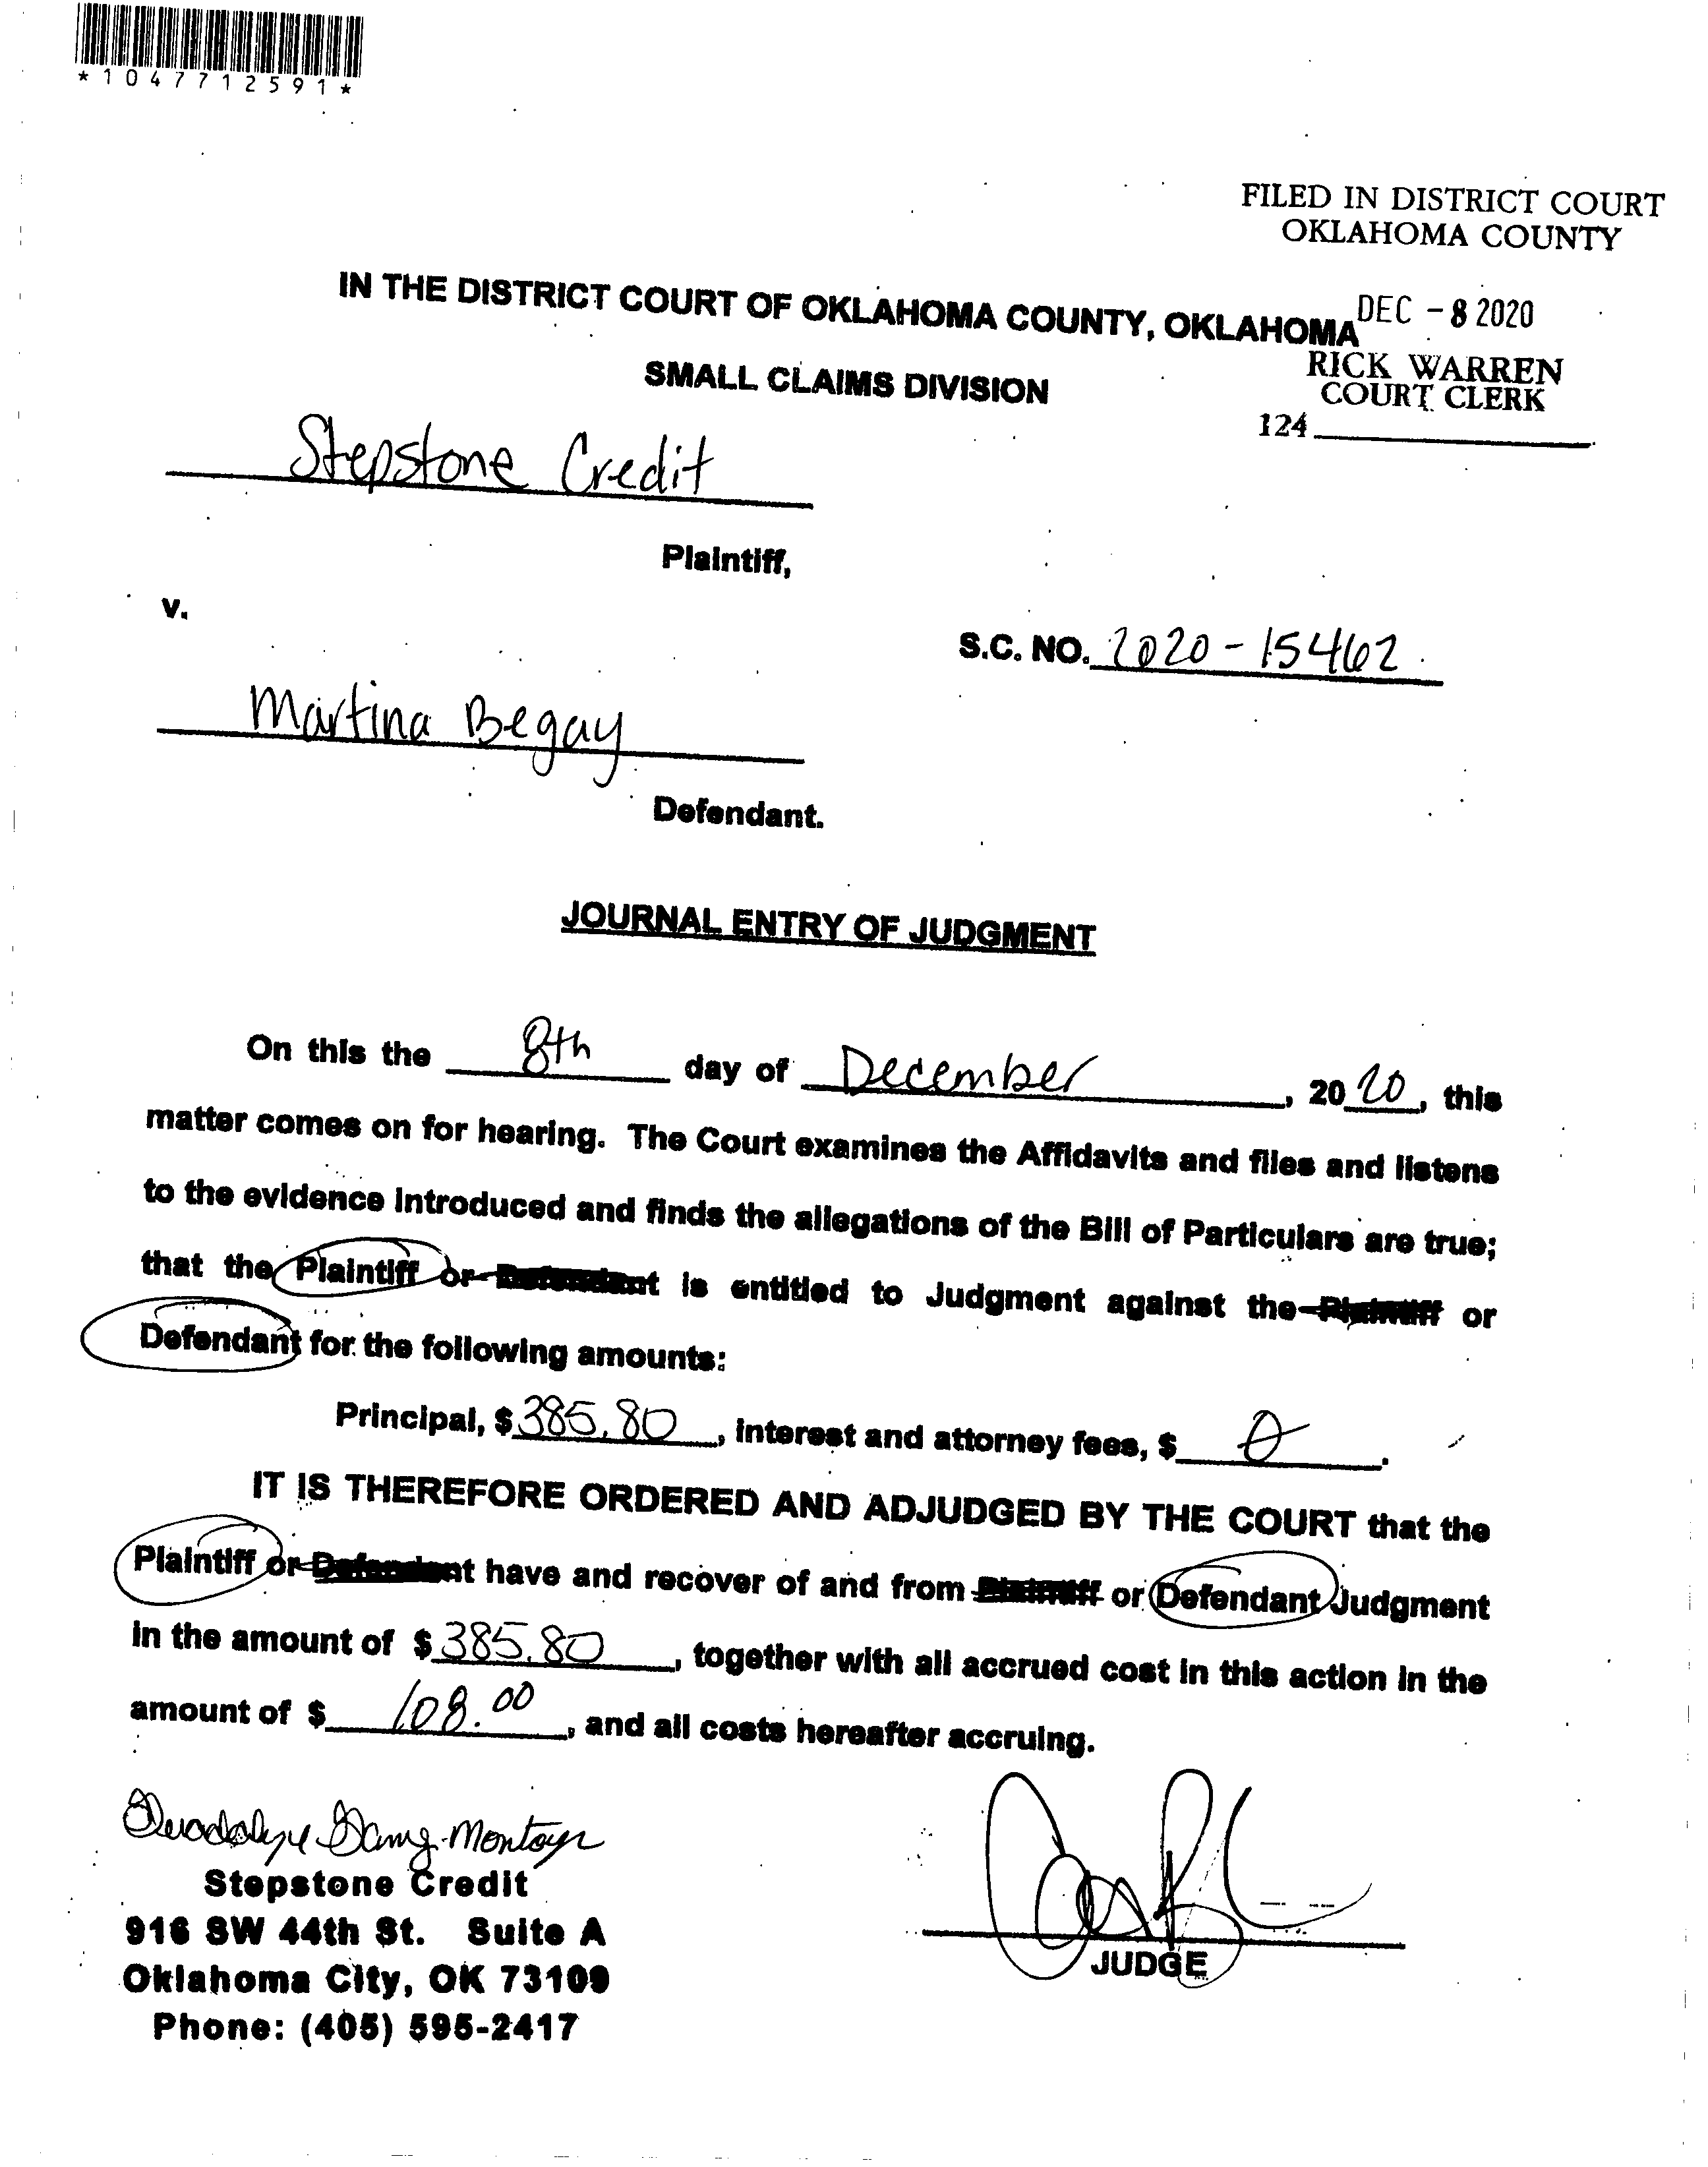 *1047712591*
FILED IN DISTRICT COURT
OKLAHOMA COUNTY
DEC - 8 2020
RICK WARREN
COURT CLERK
124
IN THE DISTRICT COURT OF OKLAHOMA COUNTY, OKLAHOMA
SMALL CLAIMS DIVISION
Stepstone Credit
Plaintiff,
v.
S.C. NO. 2020-15462
Martina Begay
Defendant.
JOURNAL ENTRY OF JUDGMENT
On this the 8th day of December, 2020, this
matter comes on for hearing. The Court examines the Affidavits and files and listens
to the evidence introduced and finds the allegations of the Bill of Particulars are true;
that the Plaintiff or Defendant is entitled to Judgment against the Plaintiff or
Defendant for the following amounts:
Principal, $385.80, interest and attorney fees, $ 0.
IT IS THEREFORE ORDERED AND ADJUDGED BY THE COURT that the
Plaintiff or Defendant have and recover of and from Plaintiff or Defendant Judgment
in the amount of $385.80, together with all accrued cost in this action in the
amount of $ 108.00, and all costs hereafter accruing.
Stepstone Credit
916 SW 44th St. Suite A
Oklahoma City, OK 73109
Phone: (405) 595-2417
JUDGE